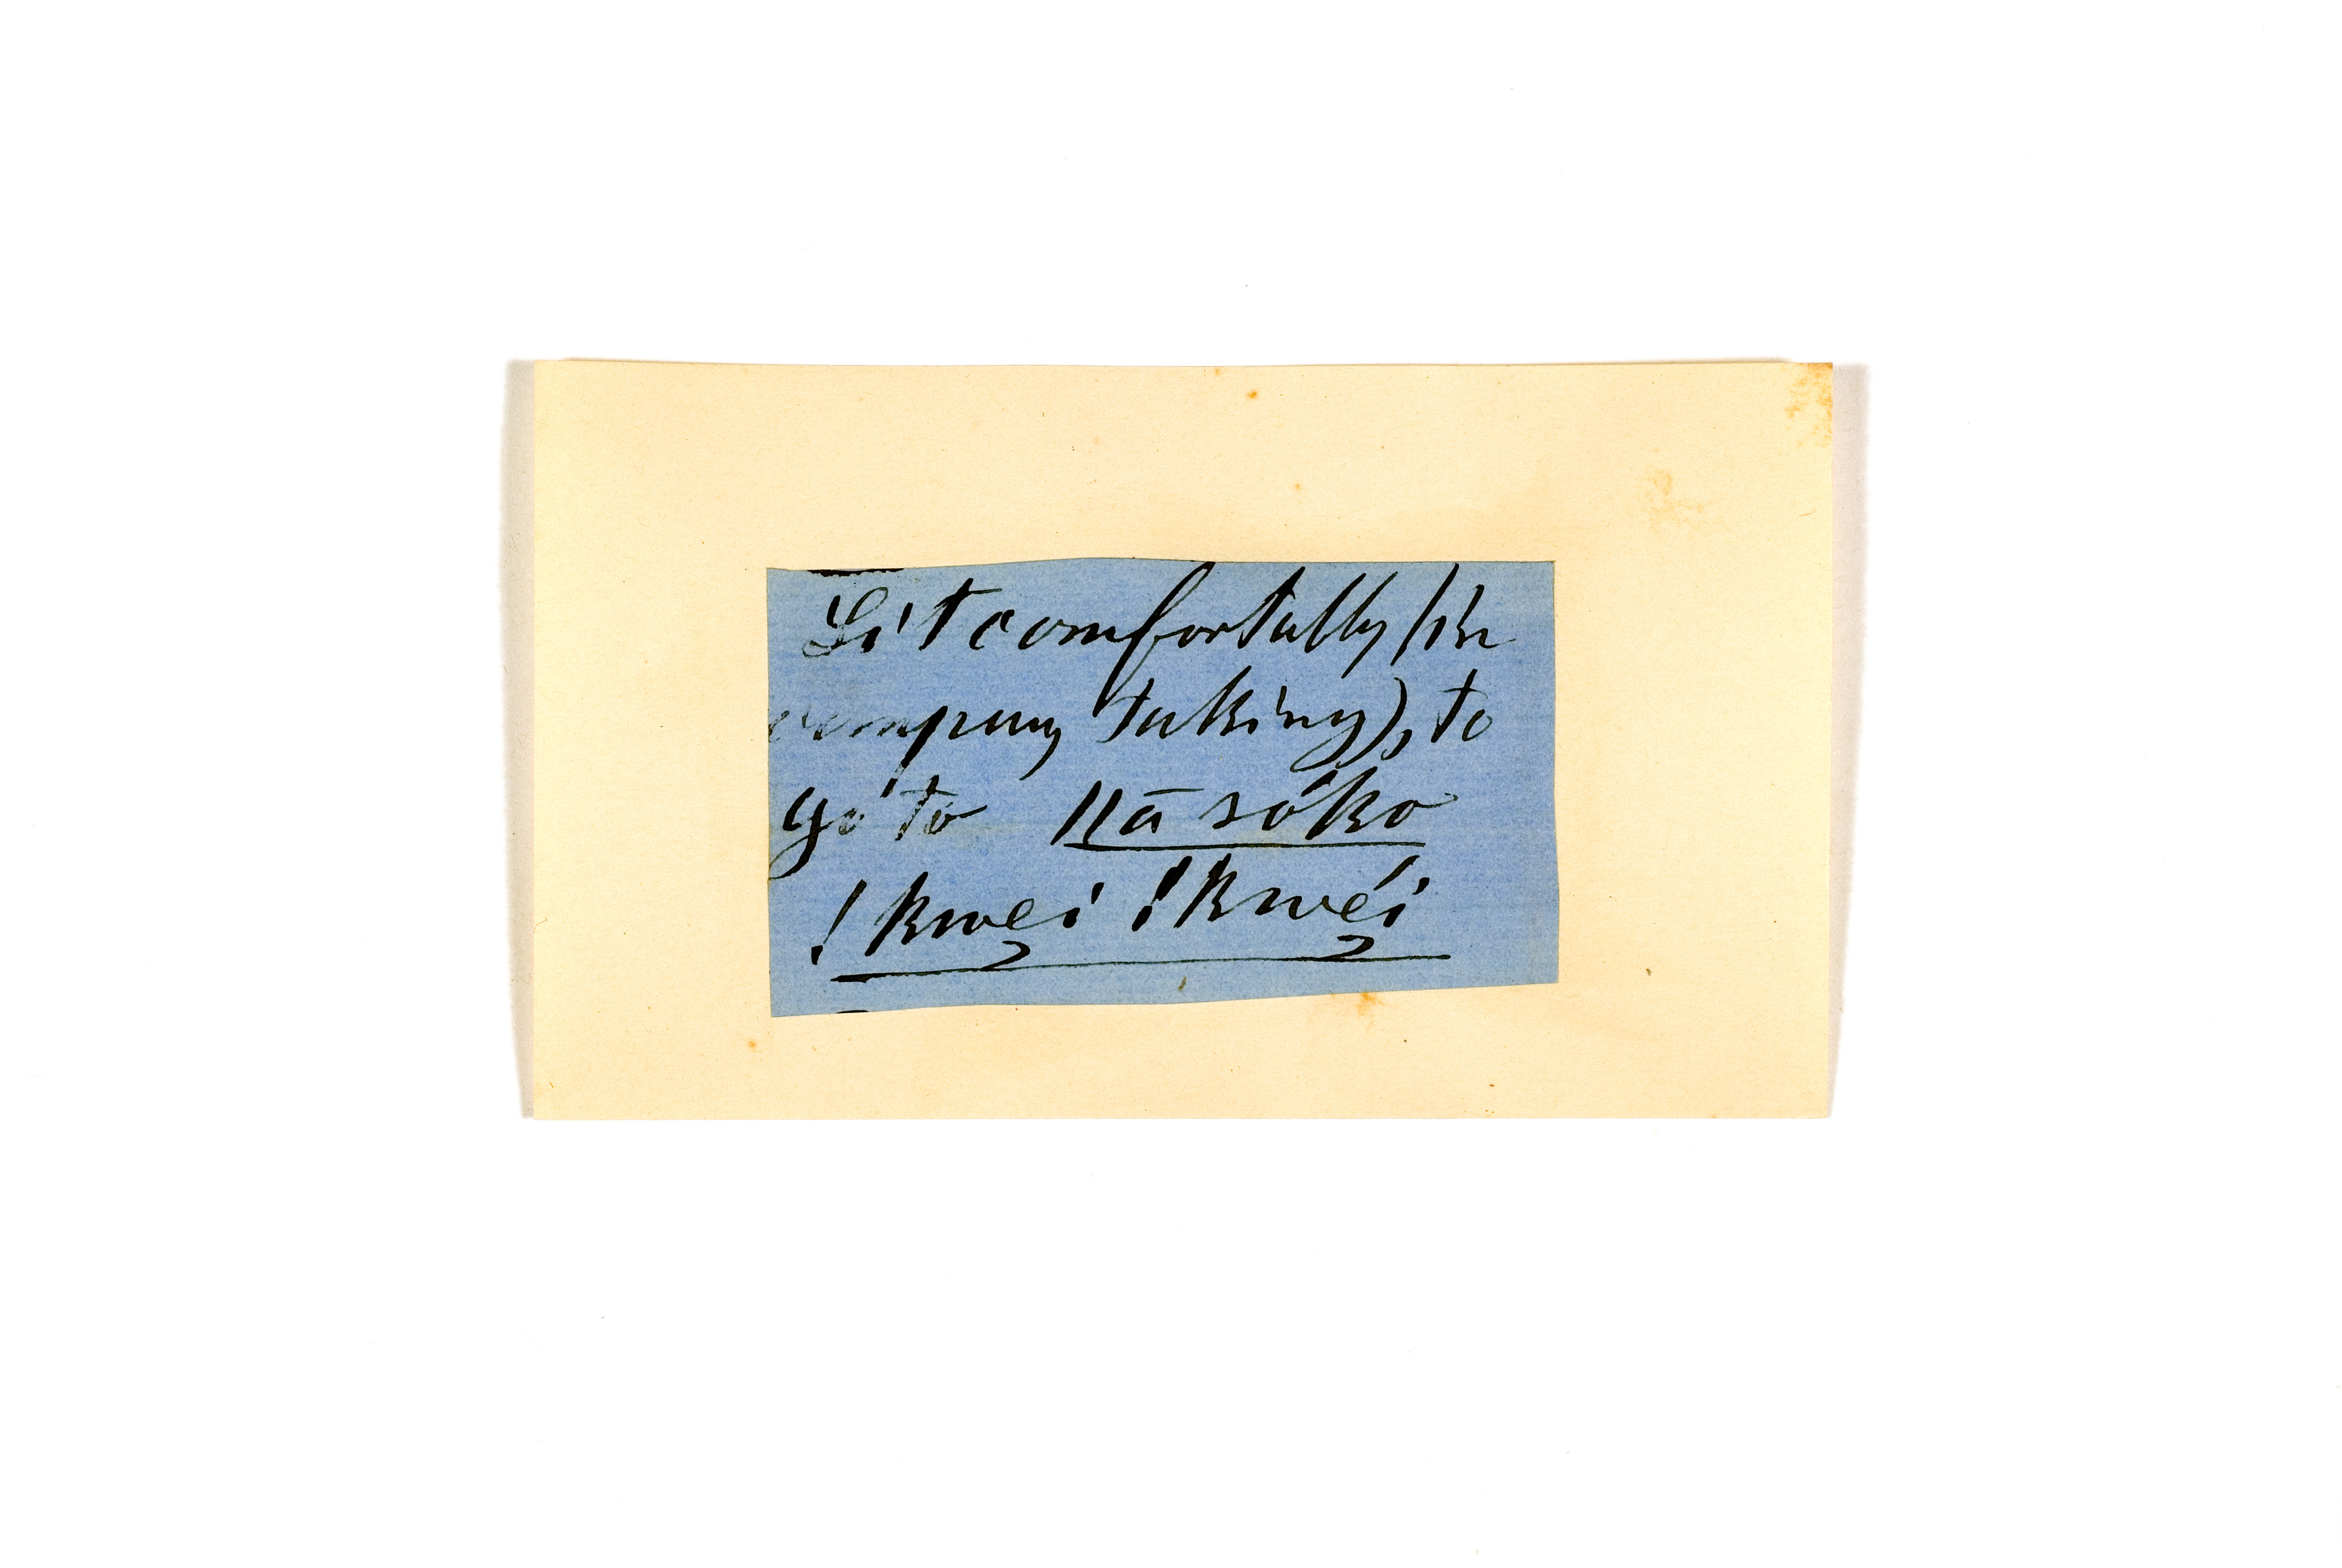 Sit comfortably (in
company talking), to
go to ǁā sóko
!kwe̯i !kwé̯i